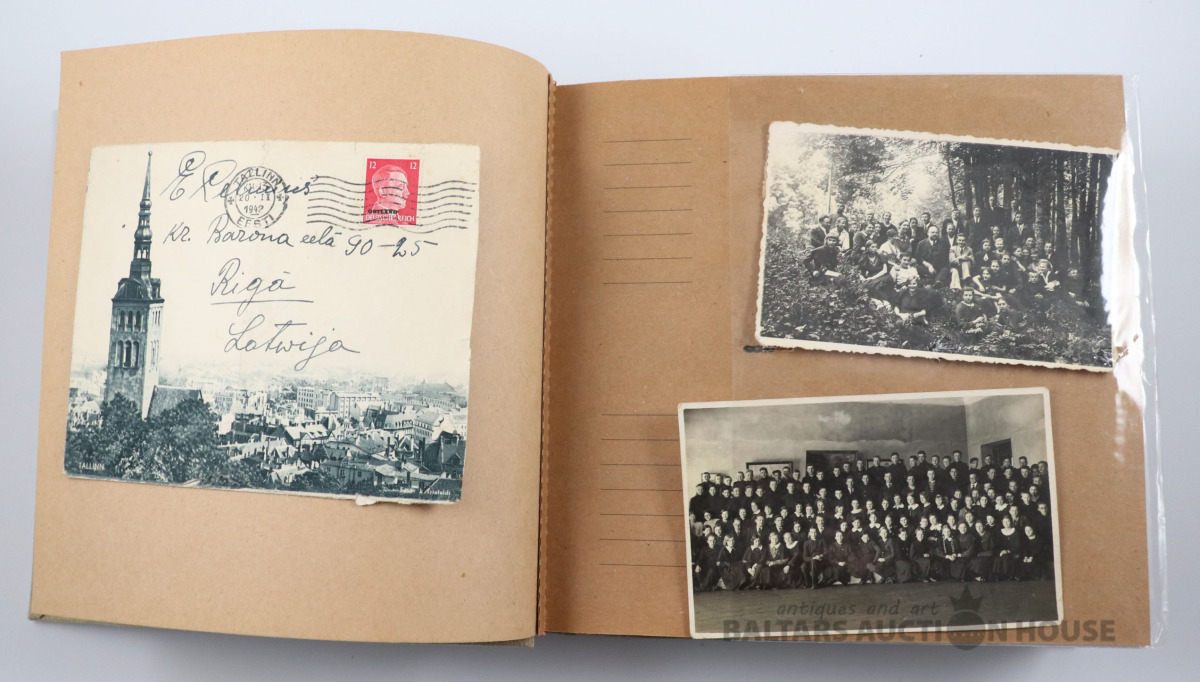 TALLINN
20 · II
1942
EESTI
12 12
OSTLAND
DEUTSCHES REICH
E
Kr. Barona eelā 90-25
Rigā
Latwija
TALLINN
antiques and art
BALTARS AUCTION HOUSE